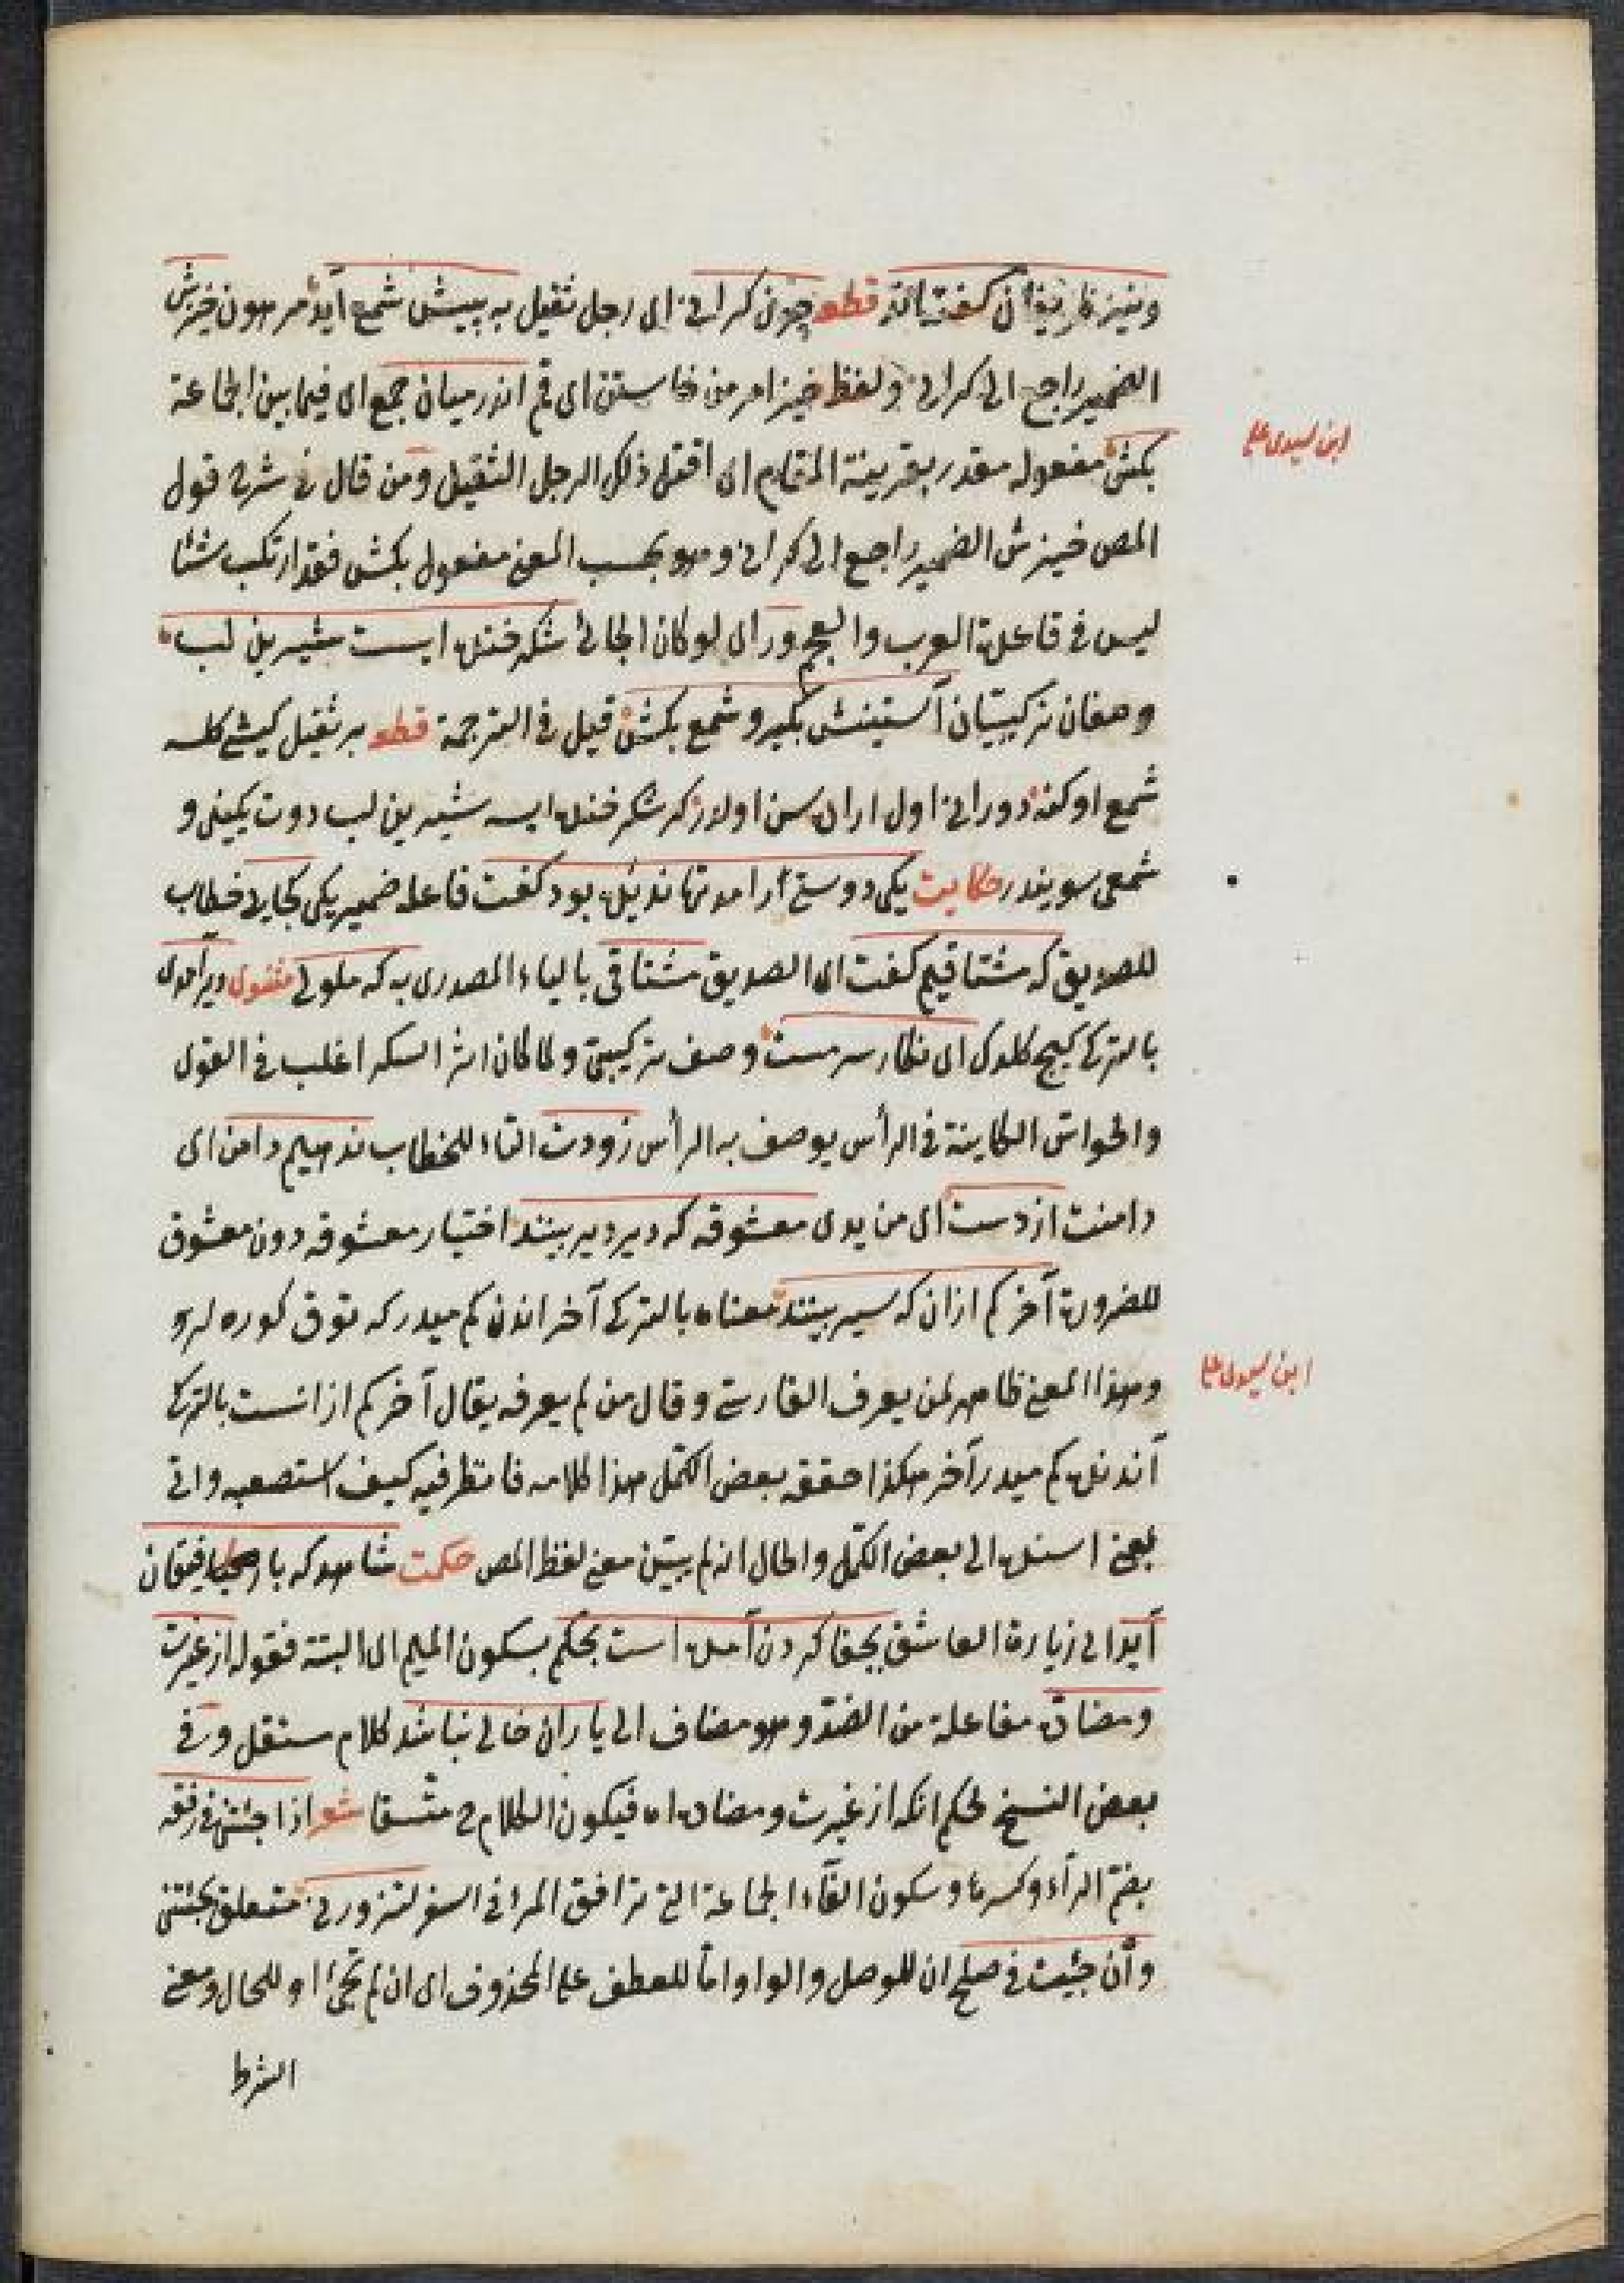 ونیز ظریفان گفته‌اند قطعه چون کرانی ای رجل ثقیل به پیش شمع آید مرهون خیزش
الضمیر راجع الی کرانی ولفظ خیز امر من خاستن ای قم اندر میان جمع ای فیما بین الجماعة
بکش مفعوله مقدر بقرینة المقام ای اقتل ذلک الرجل الثقیل ومن قال فی شرح قول
المص خیزش الضمیر راجع الی کرانی وهو بحسب المعنی مفعول بکش فقد ارتکب شئا
لیس فی قاعدة العرب والعجم ور ای لو کان الجائی شکر خنده ایست شیرین لب
وصفان ترکیبیان آستینش بگیر و شمع بکش قیل فی الترجمة قطعه بر ثقیل کیشی کلسه
شمع اوکنه دورانی اول اراده سن اولدر کر شکر خنده ایسه شیرین لب دوت یکینی و
شمعی سویندر حکایت یکی دوستی را مدتها ندیده بود گفت فاعله ضمیر یکی کجایی خطاب
للصدیق که مشتاقیم گفت ای الصدیق مشتاقی بالیاء المصدری به که ملولی مثنوی دیر آمدی
بالترکی کیج کلدک ای نکار سرمست وصف ترکیبی ولما کان اثر السکر اغلب فی القول
والحواس الکاینة فی الرأس یوصف به الرأس زودت التاء للخطاب ندهیم دامن ای
دامنت از دست ای من یدی معشوقه که دیر دیر بینند اختیار معشوقه دون معشوق
للضرورة آخر کم از ان که سیر بینند معناه بالترکی آخر اندن کم میدر که توق کوره لر
وهذا المعنی ظاهر لمن یعرف الفارسی وقال من لم یعرفه یقال آخر کم از انست بالترکی
آندنده کم میدر آخر هکذا حققه بعض الکمل هذا کلامه فانظر فیه کیف استصعبه واتی
بمعنی اسنده الی بعض الکمل والحال انه لم یبین معنی لفظ المص حکمت شاهد که با رفیقان
آید الی زیارة العاشق بجفا کردن آمده است بحکم بسکون المیم ای البتة فقوله از غیرت
ومضادة مفاعلة من الضد وهو مضاف الی یاران خالی نباشد کلام مستقل وفی
بعض النسخ بحکم انکه از غیرت ومضادة اه فیکون الکلام ح متسقا شعر اذا جئتنی فی رفقة
بضم الراء وکسرها وسکون الفاء الجماعة التی ترافق المرا فی السفر لتزورنی متعلق بجئتنی
وان جئت فی صلح ان للوصل والواو اما للعطف علی المحذوف ای ان لم تجئ او للحال ومعنی
الشرط
ابن سیدی علی
ابن سیدی علی